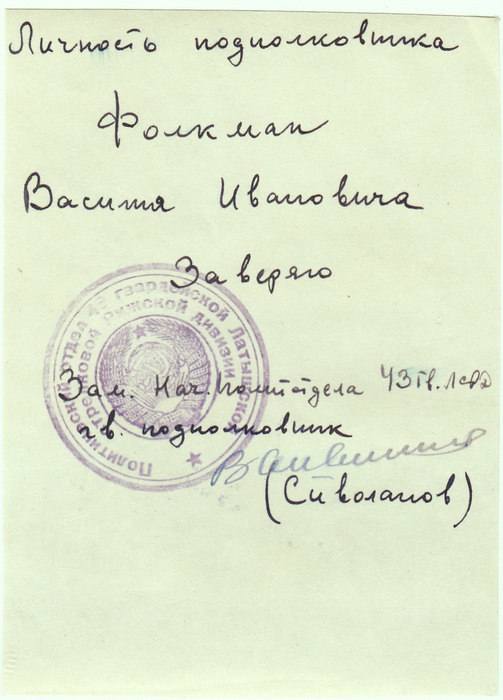 Личность подполковника
Фолкман
Василия Ивановича
Заверяю
Политический отдел 43 гвардейской Латышской
стрелковой Рижской дивизии
Зам. Нач. политотдела 43 гв. ЛСРД
гв. подполковник
(Сиволапов)